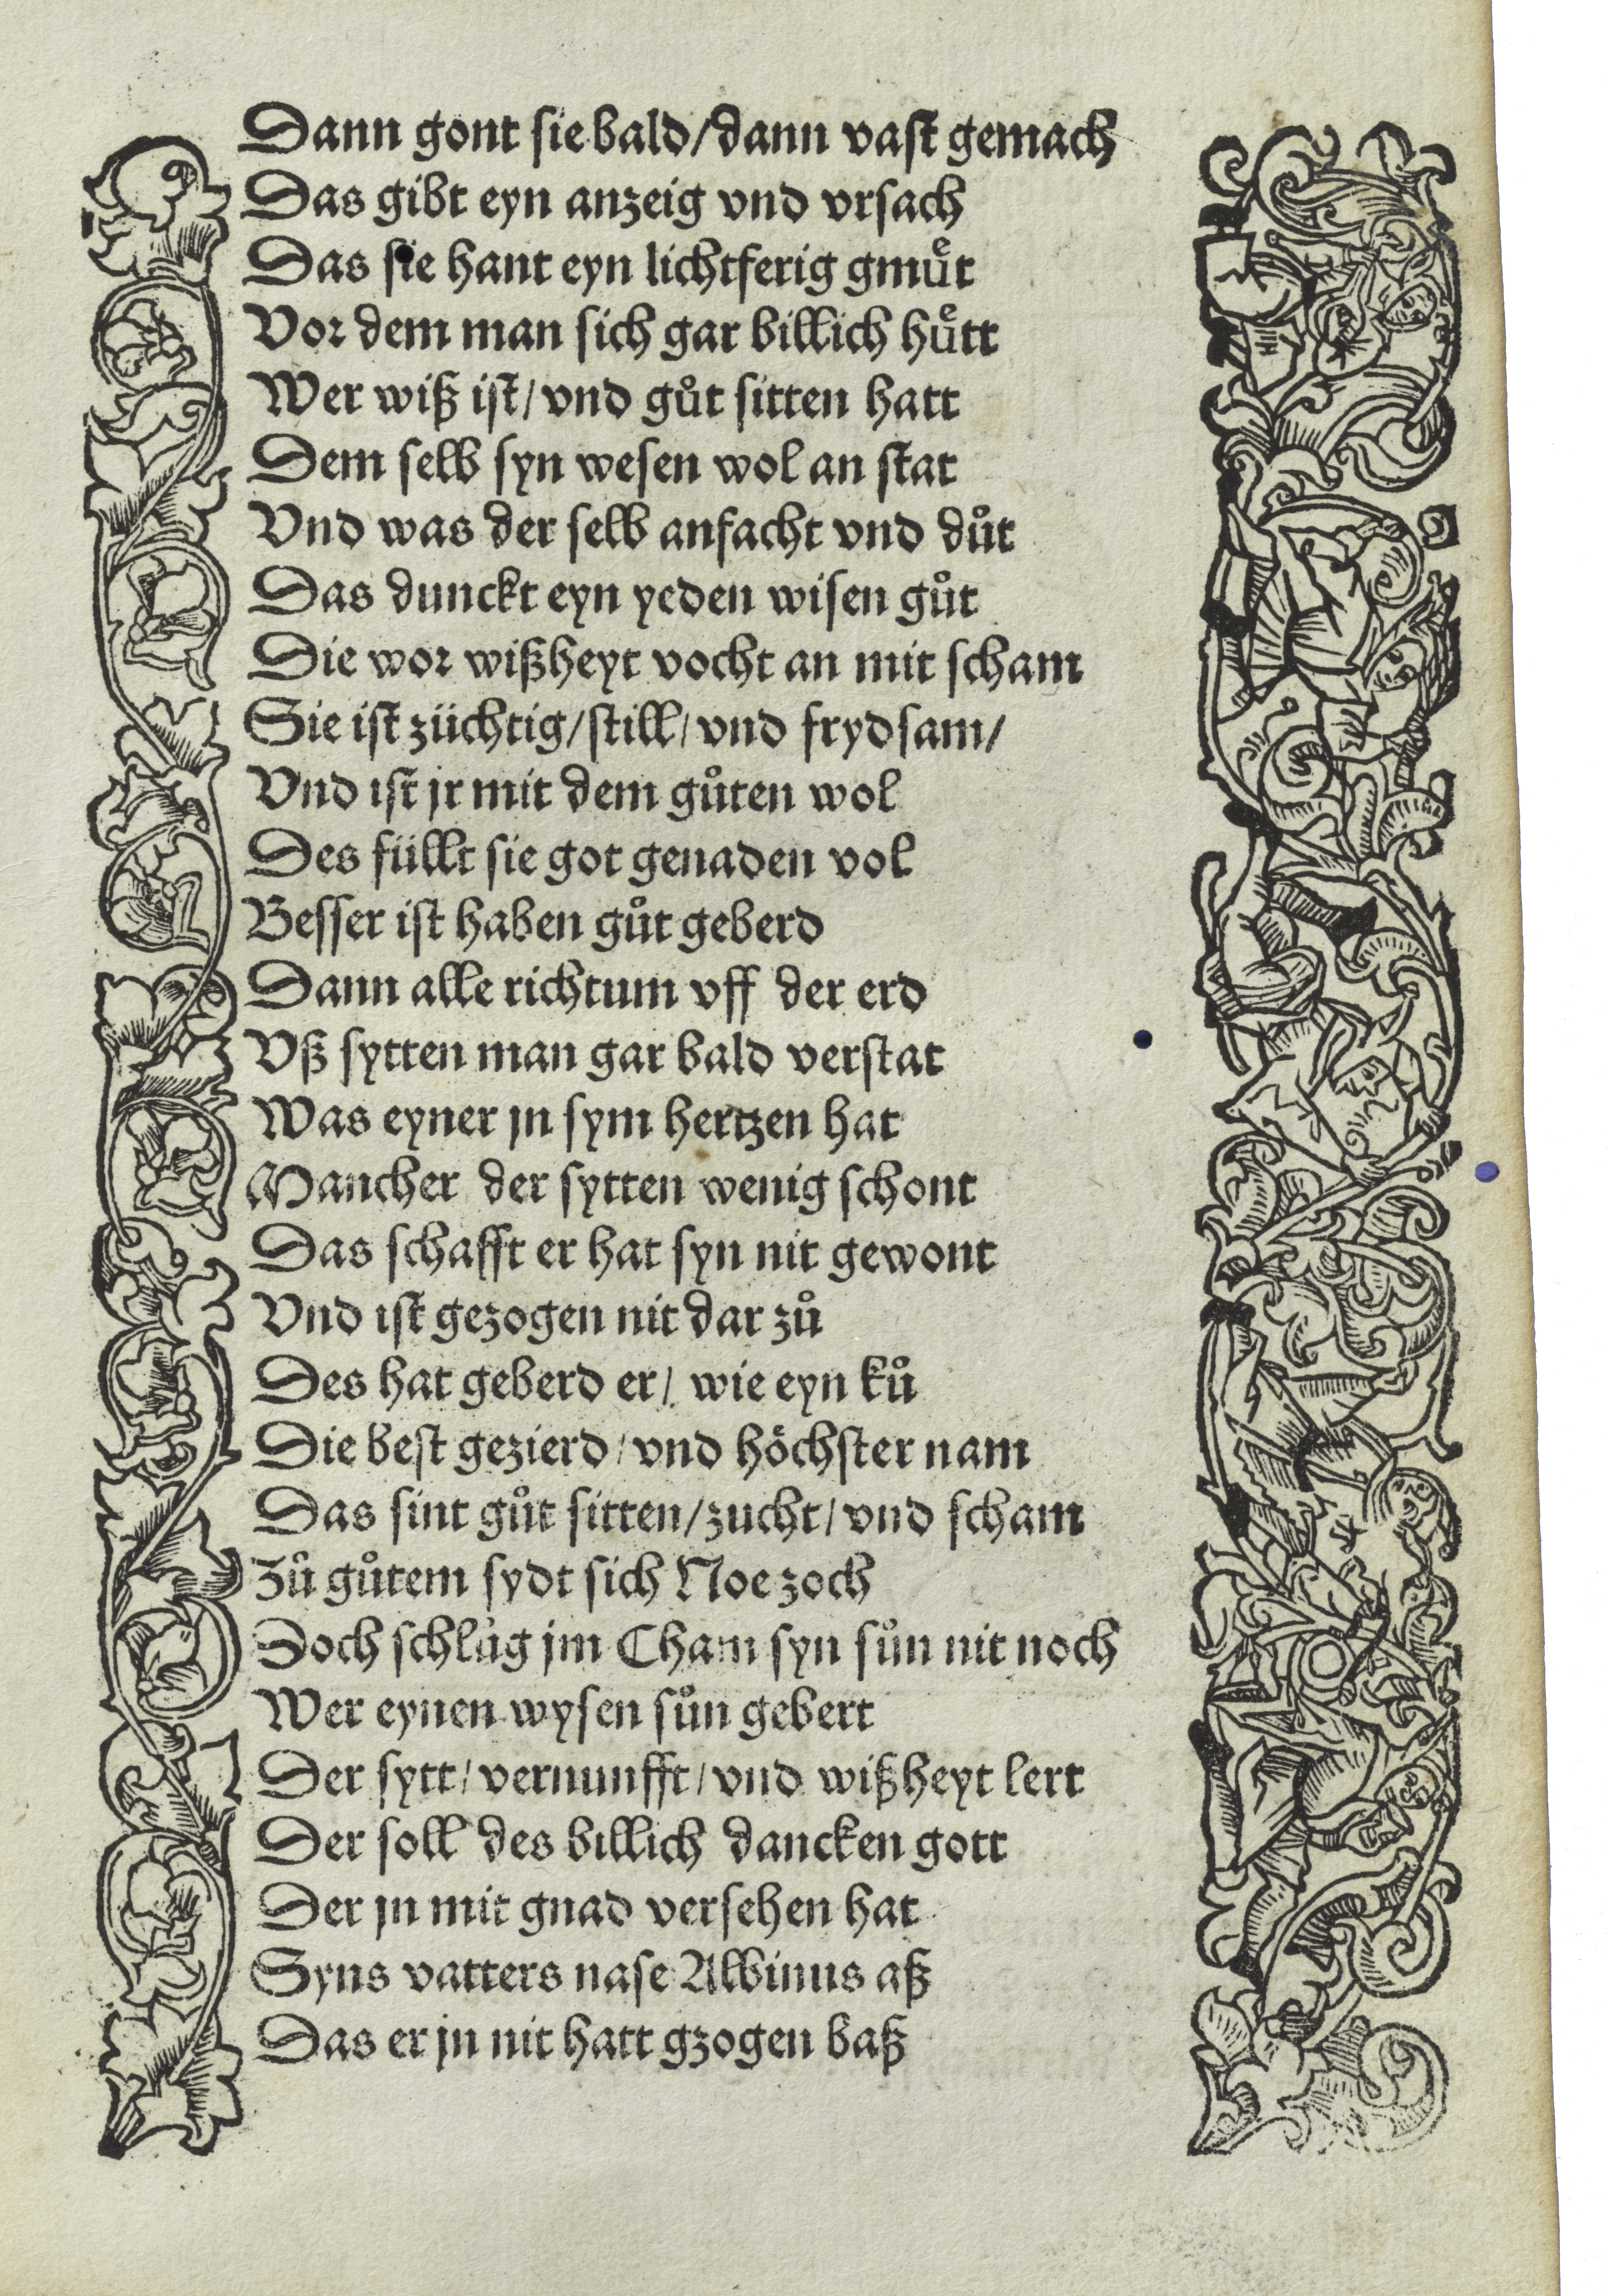 Dann gont sie bald/dann vast gemach
Das gibt eyn anzeig vnd vrsach
Das sie hant eyn lichtferig gmuͤt
Vor dem man sich gar billich huͤtt
Wer wiß ist/vnd guͦt sitten hatt
Dem selb syn wesen wol an stat
Vnd was der selb anfacht vnd duͦt
Das dunckt eyn yeden wisen guͦt
Die wor wißheyt vocht an mit scham
Sie ist züchtig/still/vnd frydsam/
Vnd ist jr mit dem guͦten wol
Des füllt sie got genaden vol
Besser ist haben guͦt geberd
Dann alle richtum vff der erd
Vß sytten man gar bald verstat
Was eyner jn sym hertzen hat
Mancher der sytten wenig schont
Das schafft er hat syn nit gewont
Vnd ist gezogen nit dar zuͦ
Des hat geberd er/wie eyn kuͦ
Die best gezierd/vnd höchster nam
Das sint guͦt sitten/zucht/vnd scham
Zuͦ guͦtem sydt sich Noe zoch
Doch schluͦg jm Cham syn suͦn nit noch
Wer eynen wysen suͦn gebert
Der sytt/vernunfft/vnd wißheyt lert
Der soll des billich dancken gott
Der jn mit gnad versehen hat
Syns vatters nase Albinus aß
Das er jn nit hatt gzogen baß